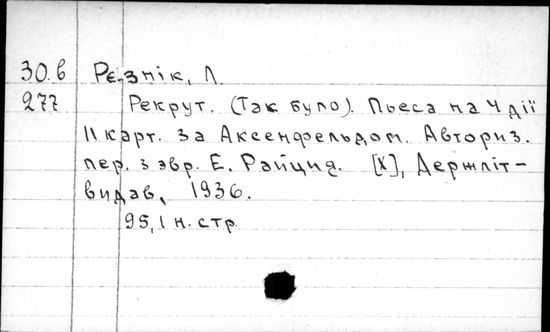 30.в Рєзнік, Л.
277 Рекрут. (Так було). Пьеса на 4 дії
11 карт. за Аксенфельдом. Авториз.
пер. з євр. Е. Райцид. [Х], Держліт-
видав, 1936.
95,1 н. стр